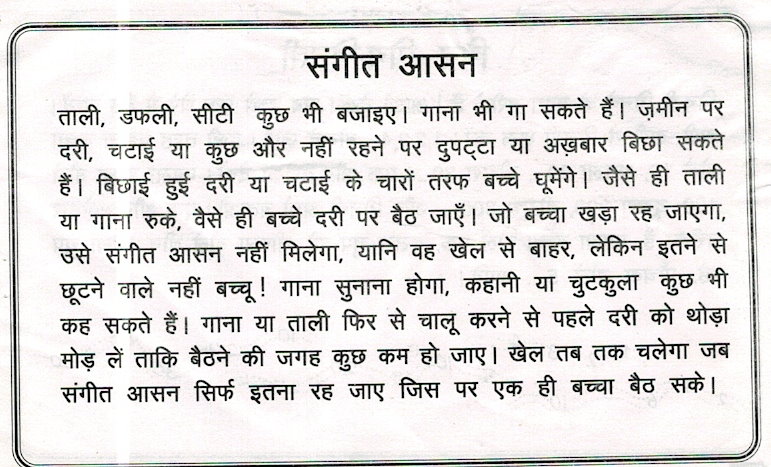 संगीत आसन
ताली, डफली, सीटी कुछ भी बजाइए। गाना भी गा सकते हैं। ज़मीन पर
दरी, चटाई या कुछ और नहीं रहने पर दुपट्टा या अख़बार बिछा सकते
हैं। बिछाई हुई दरी या चटाई के चारों तरफ बच्चे घूमेंगे। जैसे ही ताली
या गाना रुके, वैसे ही बच्चे दरी पर बैठ जाएँ। जो बच्चा खड़ा रह जाएगा,
उसे संगीत आसन नहीं मिलेगा, यानि वह खेल से बाहर, लेकिन इतने से
छूटने वाले नहीं बच्चू! गाना सुनाना होगा, कहानी या चुटकुला कुछ भी
कह सकते हैं। गाना या ताली फिर से चालू करने से पहले दरी को थोड़ा
मोड़ लें ताकि बैठने की जगह कुछ कम हो जाए। खेल तब तक चलेगा जब
संगीत आसन सिर्फ इतना रह जाए जिस पर एक ही बच्चा बैठ सके।